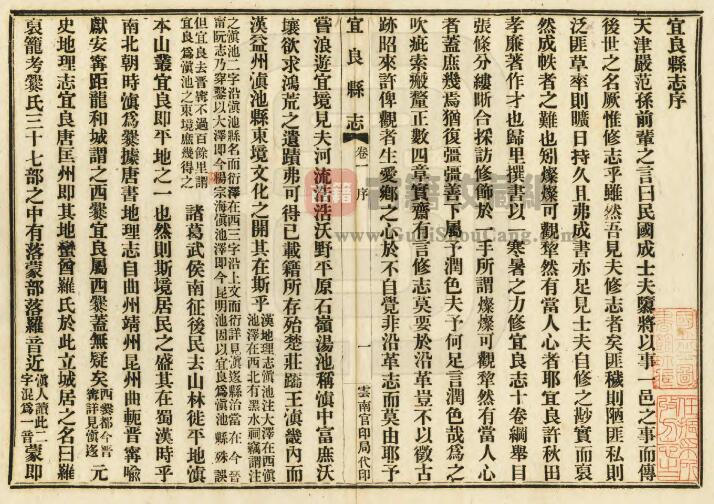 宜良縣志序
天津嚴范孫前輩之言曰民國成士夫隳將以事一邑之事而傳
後世之名厥惟修志乎雖然吾見夫修志者矣匪穢則陋匪私則
泛匪草率則曠日持久且弗成書亦足見士夫自修之尠實而裒
然成帙者之難也矧燦燦可觀犂然有當人心者耶宜良許秋田
孝廉著作才也歸里撰書以一寒暑之力修宜良志十卷綱舉目
張條分縷晰合採訪修飾於一手所謂燦燦可觀犂然有當人心
者蓋庶幾焉猶復彊彊善下屬予潤色夫予何足言潤色哉爲之
吹疵索瘢釐正數四章實齋有言修志莫要於沿革豈不以徵古
跡昭來許俾觀者生愛鄉之心於不自覺非沿革志而莫由耶予
宜良縣志 卷一 序 一 雲南官印局代印
嘗浪遊宜境見夫河流浩浩沃野平原石嶺湯池稱滇中富庶沃
壤欲求鴻荒之遺蹟弗可得已載籍所存殆楚莊蹻王滇畿內而
漢益州滇池縣東境文化之開其在斯乎
漢地理志滇池注大澤在西滇
池澤在西北有黑水祠竊謂注
之滇池二字沿滇池縣名而衍澤在西三字沿上文而衍詳見滇逶縣治當在今晉
甯阮志乃穿鑿以大澤卽今楊宗海滇池澤卽今昆明池因以宜良爲滇池縣殊誤
但宜良去晉甯不過百餘里謂
宜良爲滇池之東境庶幾得之
諸葛武侯南征後民去山林徙平地滇
本山叢宜良卽平地之一也然則斯境居民之盛其在蜀漢時乎
南北朝時滇爲爨據唐書地理志自曲州靖州昆州曲軛晋甯喩
獻安甯距龍和城謂之西爨宜良屬西爨蓋無疑矣
西爨都今晋
甯詳見滇逶
元
史地理志宜良唐匡州卽其地蠻酋羅氏於此立城居之名曰羅
裒籠考爨氏三十七部之中有落蒙部落羅音近
滇人讀此二
字混爲一音
蒙卽
www.GujiShouCang.com